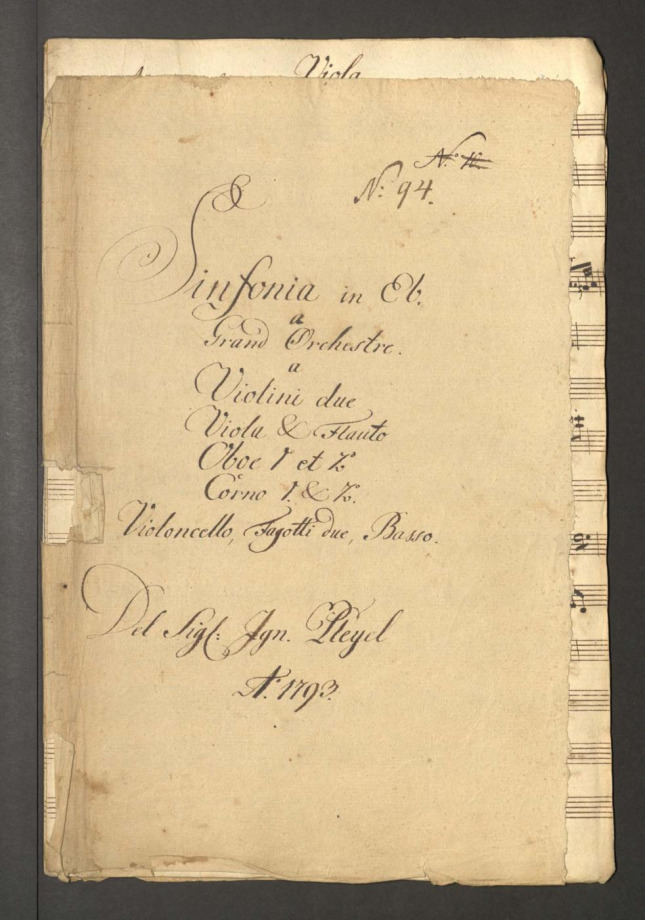 Viola
N.º 94.
Sinfonia in Eb.
a
Grand Orchestre.
a
Violini due
Viola & Flauto
Oboe 1 et 2º
Corno 1. & 2º.
Violoncello, Fagotti due, Basso.
Del Sigl: Ign. Pleyel
Aº. 1793.